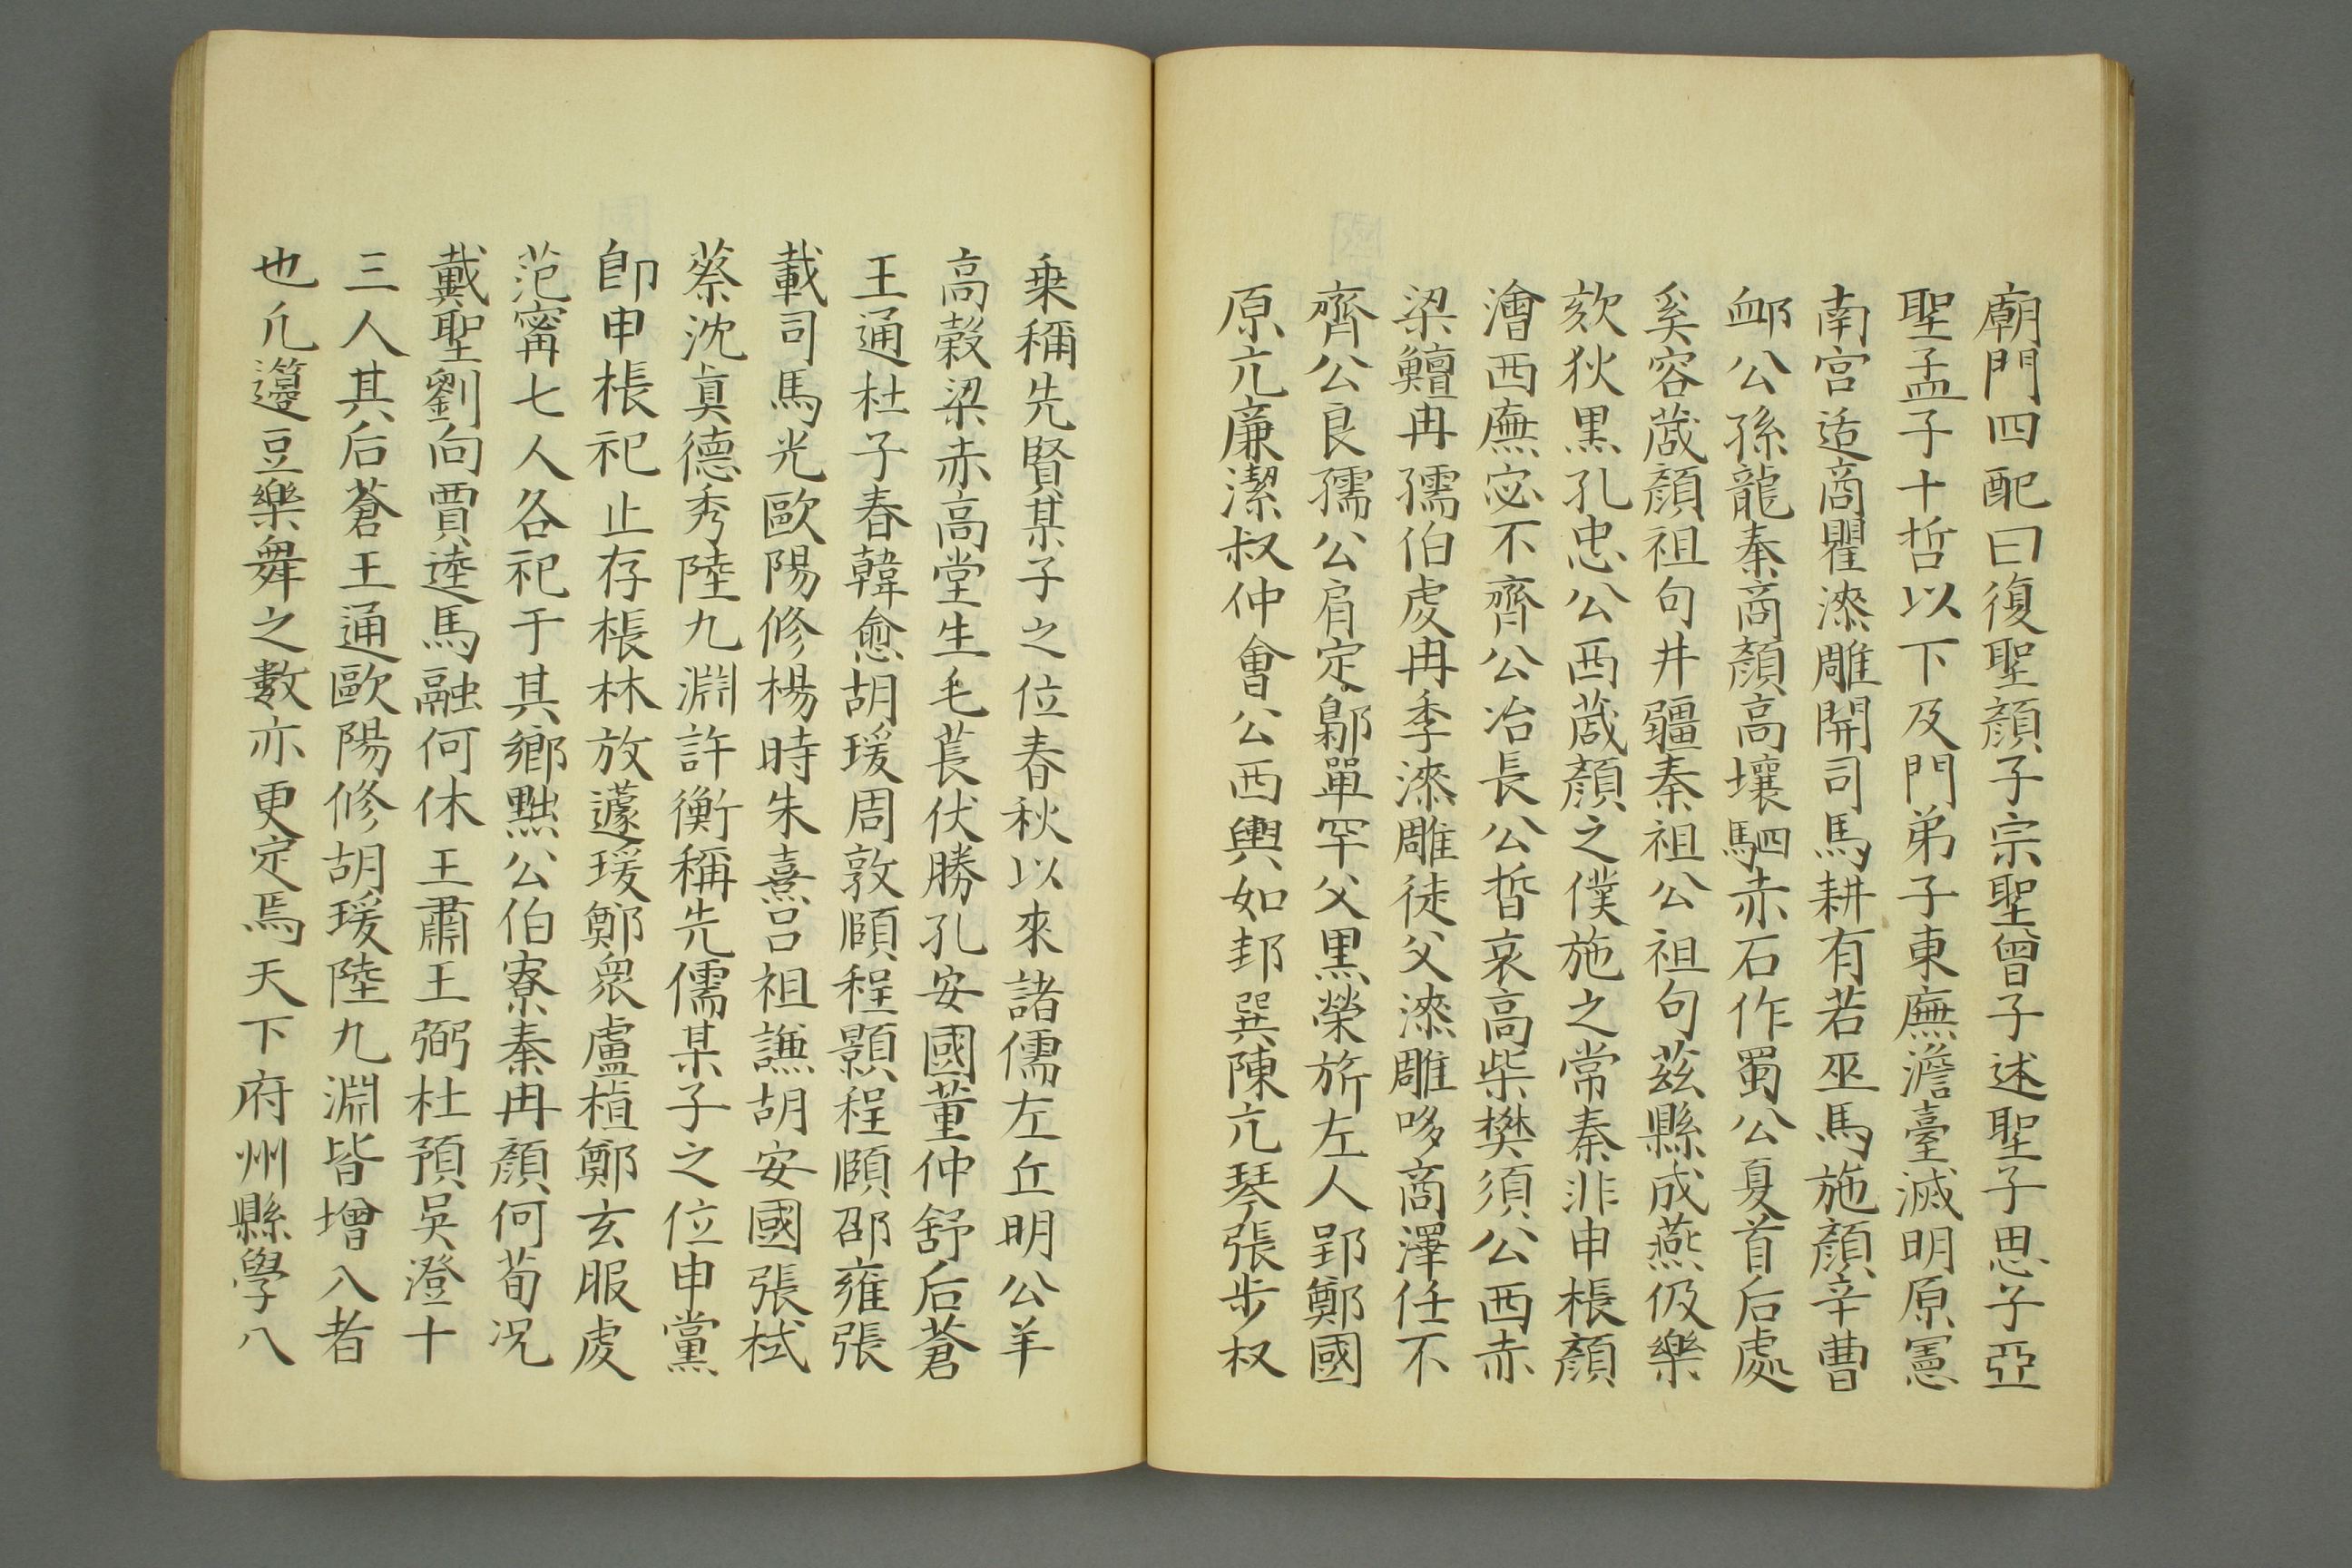 廟門四配曰復聖顏子宗聖曾子述聖子思子亞
聖孟子十哲以下及門弟子東廡澹臺滅明原憲
南宮适商瞿漆雕開司馬耕有若巫馬施顏辛曹
卹公孫龍秦商顏高壤駟赤石作蜀公夏首后處
奚容蒧顏祖句井疆秦祖公祖句茲縣成燕伋樂
欬狄黑孔忠公西蒧顏之僕施之常秦非申棖顏
澮西廡宓不齊公冶長公晳哀高柴樊須公西赤
梁鱣冉孺伯虔冉季漆雕徒父漆雕哆商澤任不
齊公良孺公肩定鄡單罕父黑榮旂左人郢鄭國
原亢廉潔叔仲會公西輿如邽巽陳亢琴張步叔
乗稱先賢某子之位春秋以來諸儒左丘明公羊
高榖梁赤高堂生毛萇伏勝孔安國董仲舒后蒼
王通杜子春韓愈胡瑗周敦頤程顥程頤邵雍張
載司馬光歐陽修楊時朱熹呂祖謙胡安國張栻
蔡沈真德秀陸九淵許衡稱先儒某子之位申黨
卽申棖祀止存棖林放蘧瑗鄭衆盧植鄭玄服虔
范甯七人各祀于其鄉黜公伯寮秦冉顏何荀况
戴聖劉向賈逵馬融何休王肅王弼杜預吳澄十
三人其后蒼王通歐陽修胡瑗陸九淵皆增入者
也凡籩豆樂舞之數亦更定焉天下府州縣學八